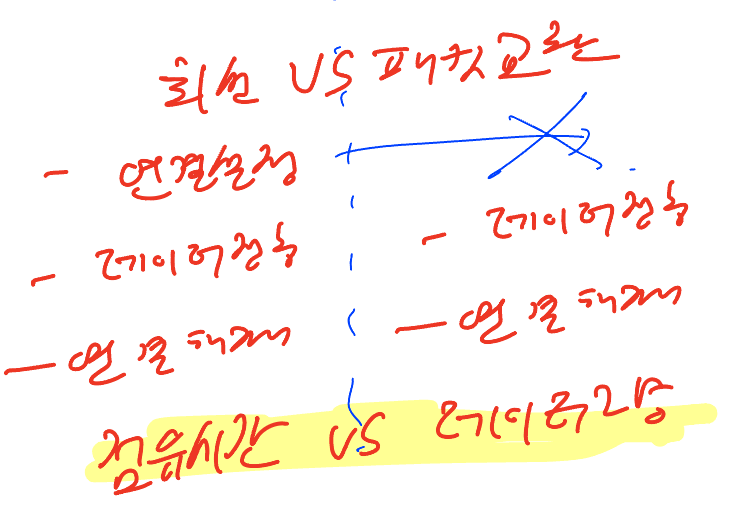 회선 VS 패킷교환
- 연결설정
- 데이터전송 - 데이터전송
- 연결해제 - 연결해제
점유시간 VS 데이터그램